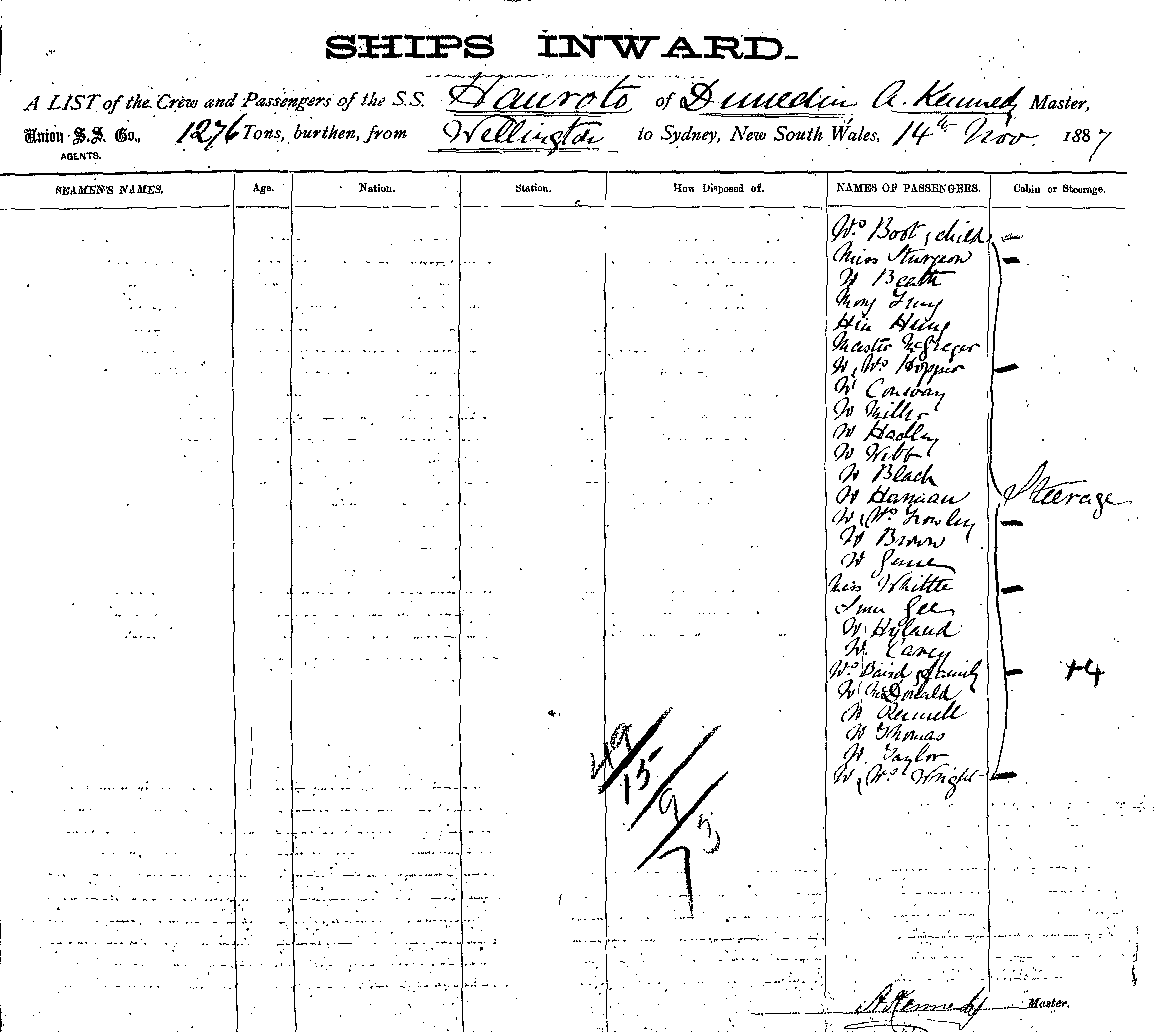 SHIPS INWARD.
A LIST of the Crew and Passengers of the S.S. Hauroto of Dunedin A. Kennedy Master,
Union S.S. Co., 1276 Tons, burthen, from Wellington to Sydney, New South Wales, 14th Nov. 1887
AGENTS.
SEAMEN'S NAMES. Age. Nation. Station. How Disposed of. NAMES OF PASSENGERS. Cabin or Steerage.
Mrs Boot & child
Miss Sturgeon
Mr Beath
Hin Hung
Master McGregor
Mr & Mrs Hopper
Mr Conway
Mr Miller
Mr Hadley
Mr Webb
Mr Black
Mr Hannan Steerage
Mr & Mrs
Mr Brown
Mr
Miss Whittle
Gee
Mr Hyland
Mr Carey
Mrs Baird & family +4
Mr McDonald
Mr
Mr Thomas
Mr Taylor
Mr & Mrs Wright
49
15
9
73
A Kennedy Master.